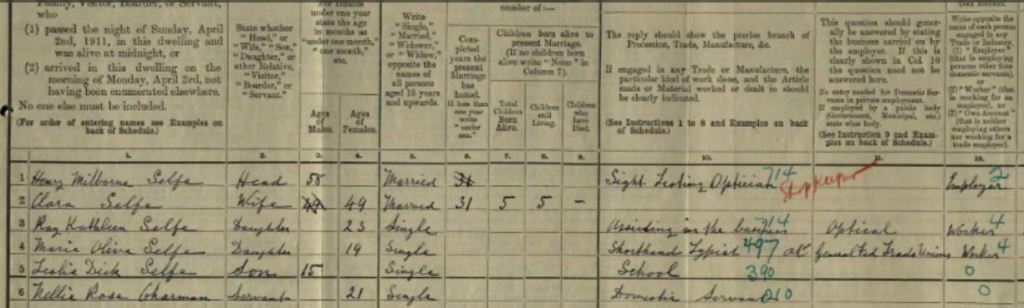 Family, Visitor, Boarder, or Servant,
who
(1) passed the night of Sunday, April
2nd, 1911, in this dwelling and
was alive at midnight, or
(2) arrived in this dwelling on the
morning of Monday, April 3rd, not
having been enumerated elsewhere.
No one else must be included.
(For order of entering names see Examples on
back of Schedule.)
State whether
"Head," or
"Wife," "Son,"
"Daughter," or
other Relative,
"Visitor,"
"Boarder," or
"Servant."
For Infants
under one year
state the age
in months as
"under one month,"
"one month,"
etc.
Ages of
Males.
Ages of
Females.
Write
"Single,"
"Married,"
"Widower,"
or "Widow,"
opposite the
names of
all persons
aged 15 years
and upwards.
number of:—
Completed
years the
present
Marriage
has
lasted.
If less
than one
year write
"under
one."
Children born alive to
present Marriage.
(If no children born
alive write "None" in
Column 7).
Total
Children
Born
Alive.
Children
still
Living.
Children
who
have
Died.
The reply should show the precise branch of
Profession, Trade, Manufacture, &c.
If engaged in any Trade or Manufacture, the
particular kind of work done, and the Article
made or Material worked or dealt in should
be clearly indicated.
(See Instructions 1 to 8 and Examples on back
of Schedule.)
This question should gener-
ally be answered by stating
the business carried on by
the employer. If this is
clearly shown in Col. 10
the question need not be
answered here.
No entry needed for Domestic Ser-
vants in private employment.
If employed by a public body
(Government, Municipal, etc.)
state what body.
(See Instruction 9 and Exam-
ples on back of Schedule.)
Write opposite the
name of each person
engaged in any
Trade or Industry,
(1) "Employer"
(that is employing
persons other than
domestic servants),
or
(2) "Worker" (that
is working for an
employer), or
(3) "Own Account"
(that is neither
employing others
nor working for a
trade employer).
1. 2. 3. 4. 5. 6. 7. 8. 9. 10. 11. 12.
1 Henry Milborne Selfe Head 58 Married 31 Sight Testing Optician 714 Shopkeeper Employer 2
2 Clara Selfe Wife 49 49 Married 31 5 5 -
3 Ray Kathleen Selfe Daughter 23 Single Assisting in the business 714 Optical Worker 4
4 Marie Olive Selfe Daughter 19 Single Shorthand Typist 497 at General Fed Trade Unions Worker 4
5 Leslie Dick Selfe Son 15 Single School 390 0
6 Nellie Rose Charman Servant 21 Single Domestic Servant 010 0